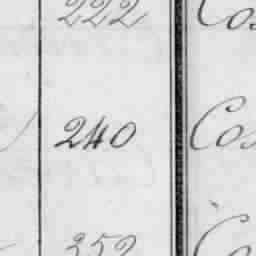 222 Cos
240 Cos
252